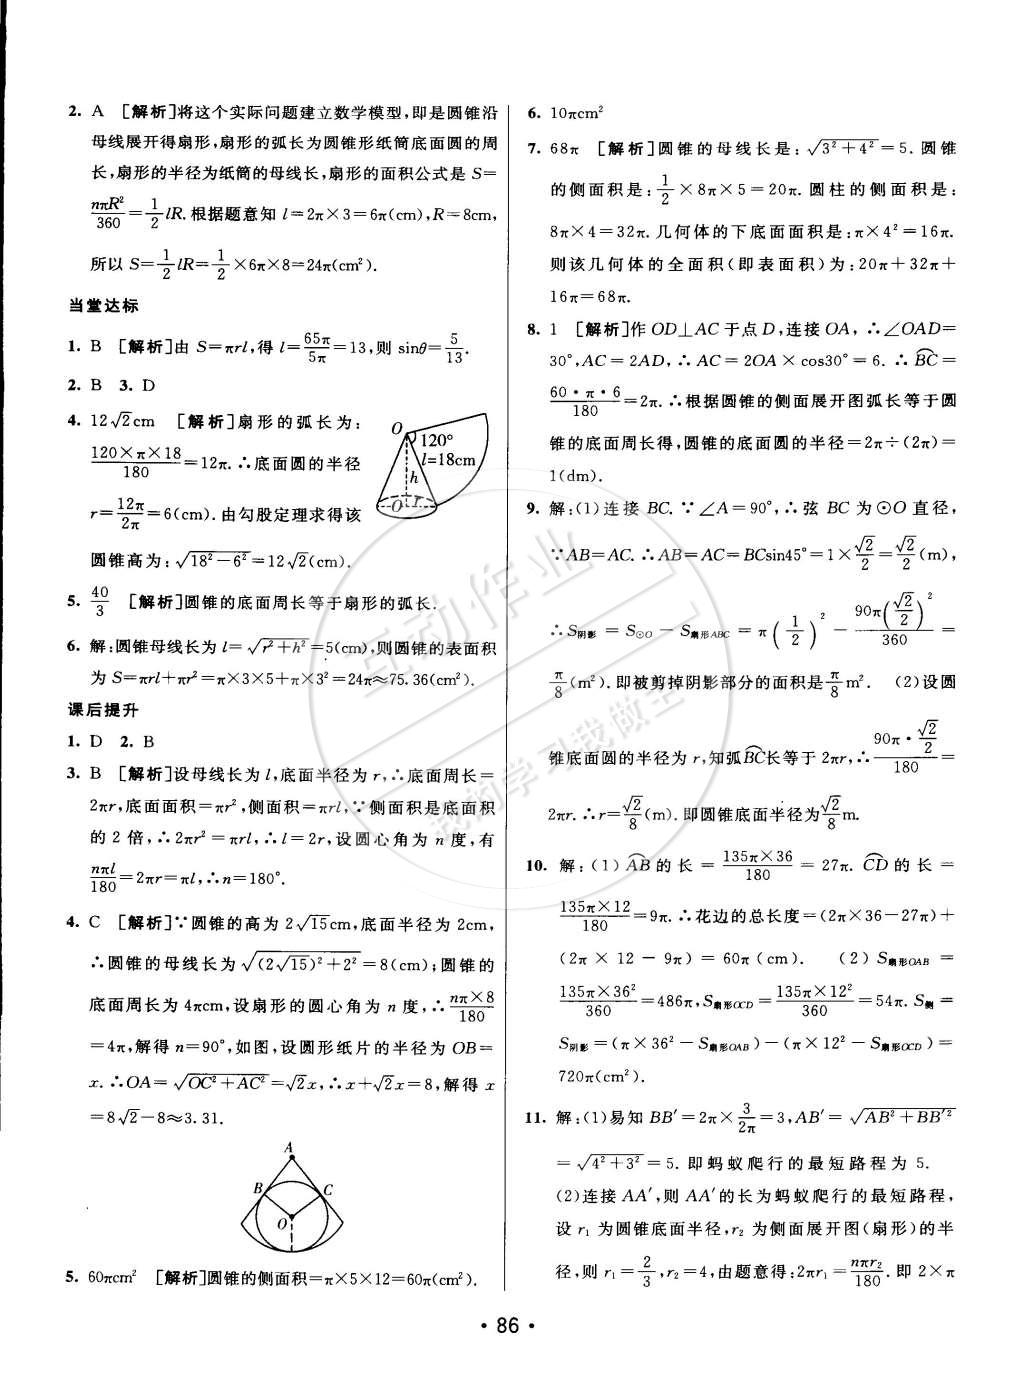 2. A [解析]将这个实际问题建立数学模型,即是圆锥沿
母线展开得扇形,扇形的弧长为圆锥形纸筒底面圆的周
长,扇形的半径为纸筒的母线长,扇形的面积公式是 S=
nπR²/360=1/2 lR.根据题意知 l=2π×3=6π(cm),R=8cm,
所以 S=1/2 lR=1/2×6π×8=24π(cm²).
当堂达标
1. B [解析]由 S=πrl,得 l=65π/5π=13,则 sinθ=5/13.
2. B 3. D
4. 12√2cm [解析]扇形的弧长为:
120×π×18/180=12π.∴底面圆的半径
r=12π/2π=6(cm).由勾股定理求得该
圆锥高为:√(18²-6²)=12√2(cm).
O
120°
l=18cm
h
O
r
5. 40/3 [解析]圆锥的底面周长等于扇形的弧长.
6. 解:圆锥母线长为 l=√(r²+h²)=5(cm),则圆锥的表面积
为 S=πrl+πr²=π×3×5+π×3²=24π≈75.36(cm²).
课后提升
1. D 2. B
3. B [解析]设母线长为 l,底面半径为 r,∴底面周长=
2πr,底面面积=πr²,侧面积=πrl,∵侧面积是底面积
的 2 倍,∴2πr²=πrl,∴l=2r,设圆心角为 n 度,有
nπl/180=2πr=πl,∴n=180°.
4. C [解析]∵圆锥的高为 2√15cm,底面半径为 2cm,
∴圆锥的母线长为√((2√15)²+2²)=8(cm);圆锥的
底面周长为 4πcm,设扇形的圆心角为 n 度,∴nπ×8/180
=4π,解得 n=90°,如图,设圆形纸片的半径为 OB=
x.∴OA=√(OC²+AC²)=√2x,∴x+√2x=8,解得 x
=8√2-8≈3.31.
A
B
C
O
5. 60πcm² [解析]圆锥的侧面积=π×5×12=60π(cm²).
6. 10πcm²
7. 68π [解析]圆锥的母线长是:√(3²+4²)=5.圆锥
的侧面积是:1/2×8π×5=20π.圆柱的侧面积是:
8π×4=32π.几何体的下底面面积是:π×4²=16π.
则该几何体的全面积(即表面积)为:20π+32π+
16π=68π.
8. 1 [解析]作 OD⊥AC 于点 D,连接 OA,∴∠OAD=
30°,AC=2AD,∴AC=2OA×cos30°=6.∴⌒BC=
60·π·6/180=2π.∴根据圆锥的侧面展开图弧长等于圆
锥的底面周长得,圆锥的底面圆的半径=2π÷(2π)=
1(dm).
9. 解:(1)连接 BC.∵∠A=90°,∴弦 BC 为⊙O 直径,
∵AB=AC.∴AB=AC=BCsin45°=1×√2/2=√2/2(m),
∴S阴影=S⊙O-S扇形ABC=π(1/2)²-90π(√2/2)²/360=
π/8(m²).即被剪掉阴影部分的面积是π/8m². (2)设圆
锥底面圆的半径为 r,知弧⌒BC长等于 2πr,∴90π·√2/2/180=
2πr.∴r=√2/8(m).即圆锥底面半径为√2/8m.
10. 解:(1)⌒AB的长=135π×36/180=27π.⌒CD的长=
135π×12/180=9π.∴花边的总长度=(2π×36-27π)+
(2π×12-9π)=60π(cm). (2)S扇形OAB=
135π×36²/360=486π,S扇形OCD=135π×12²/360=54π.S侧=
S阴影=(π×36²-S扇形OAB)-(π×12²-S扇形OCD)=
720π(cm²).
11. 解:(1)易知 BB′=2π×3/2π=3,AB′=√(AB²+BB′²)
=√(4²+3²)=5.即蚂蚁爬行的最短路程为 5.
(2)连接 AA′,则 AA′的长为蚂蚁爬行的最短路程,
设 r₁ 为圆锥底面半径,r₂ 为侧面展开图(扇形)的半
径,则 r₁=2/3,r₂=4,由题意得:2πr₁=nπr₂/180.即 2×π
互动作业
我的学习我做主
• 86 •